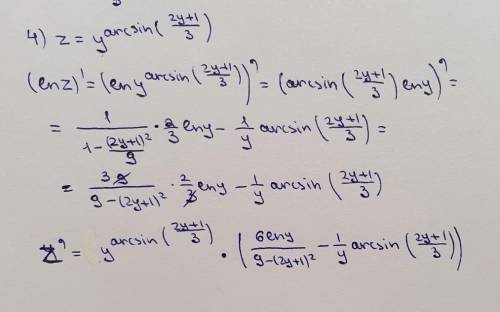 4) z = y^arcsin((2y+1)/3)
(ln z)' = (ln y^arcsin((2y+1)/3))' = (arcsin((2y+1)/3) ln y)' =
= 1/(1-(2y+1)²/9) · 2/3 ln y - 1/y arcsin((2y+1)/3) =
= 3 9/(9-(2y+1)²) · 2/3 ln y - 1/y arcsin((2y+1)/3)
z' = y^arcsin((2y+1)/3) · (6 ln y/(9-(2y+1)²) - 1/y arcsin((2y+1)/3))